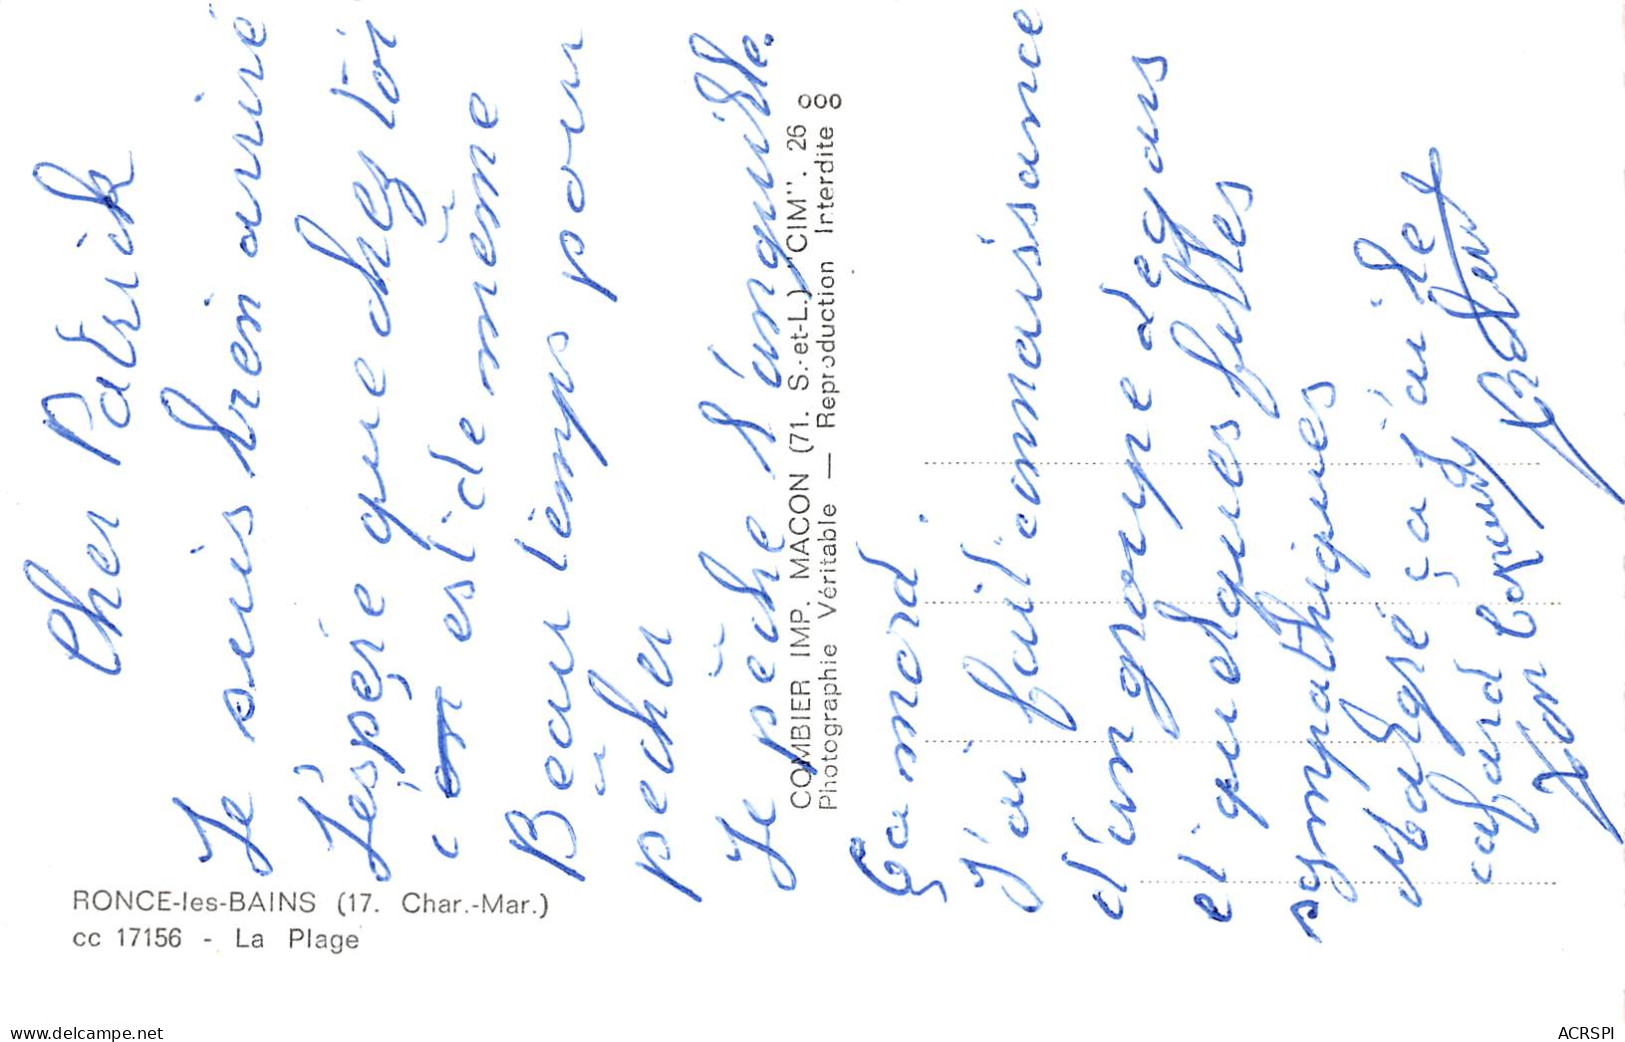 Cher Patrick
Je suis bien arrivé
J'éspére que chez toi
c'en est de même
Beau temps pour
pêcher
Je pêche l'anguille.
Ça mord.
J'ai fait connaissance
d'un groupe de gars
et quelques filles
sympathiques
Malgré ça j'ai le
cafard
Ton
RONCE-les-BAINS (17. Char.-Mar.)
cc 17156 - La Plage
COMBIER IMP. MACON (71. S.-et-L.) "CIM". 26
Photographie Véritable — Reproduction Interdite
www.delcampe.net
ACRSPI